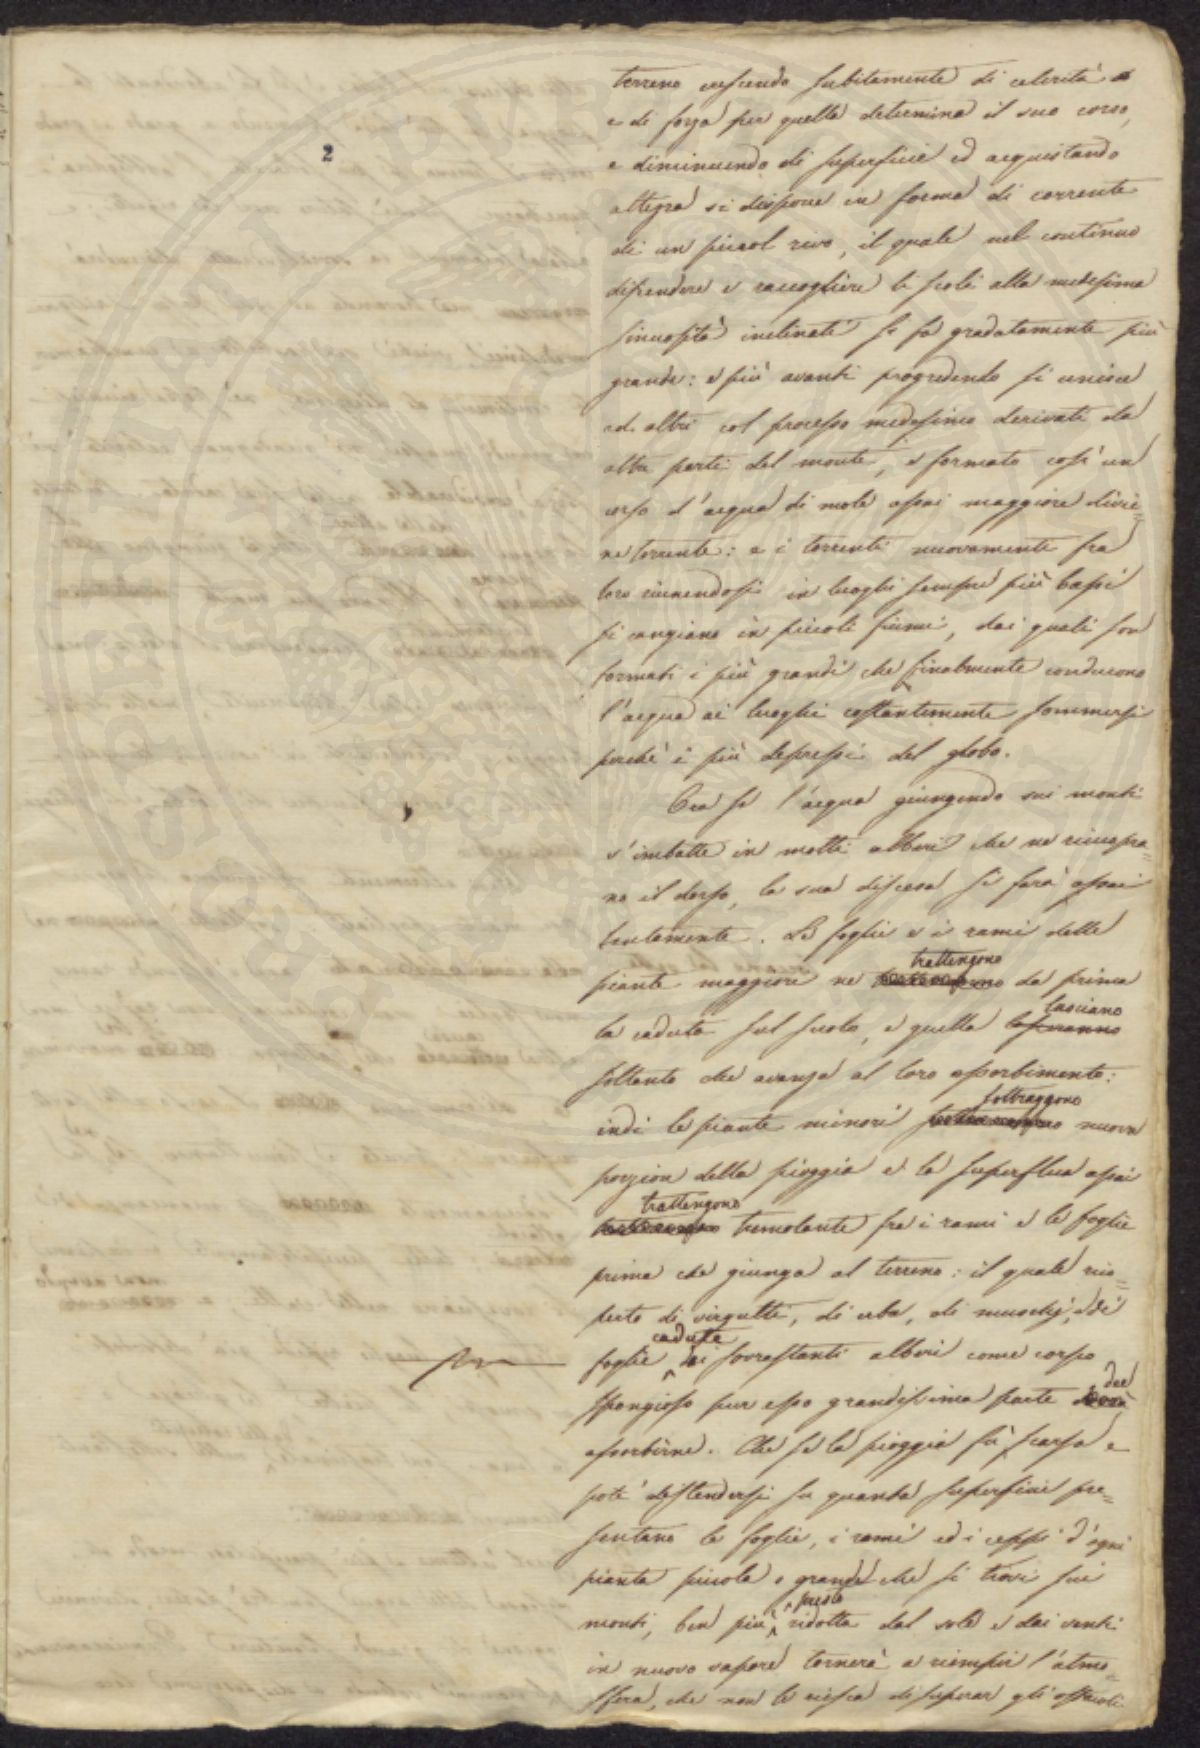 2
terreno crescendo subitamente di celerità
e di forza per quella determina il suo corso,
e diminuendo di superficie ed acquistando
altezza si dispone in forma di corrente
di un piccol rivo, il quale nel continuo
discendere e raccogliere li scoli alla medesima
sinuosità inclinati si fa gradatamente più
grande: e più avanti progredendo si unisce
ad altri col processo medesimo derivati da
altre parti del monte, e formato così un
corso d'acqua di mole assai maggiore divie=
ne torrente: e i torrenti nuovamente fra
loro riunendosi in luoghi sempre più bassi
si cangiano in piccoli fiumi, dai quali son
formati i più grandi che finalmente conducono
l'acqua ai luoghi costantemente sommersi
perché i più depressi del globo.
Ora se l'acqua giungendo sui monti
s'imbatte in molti alberi che ne ricopra=
no il dorso, la sua discesa si farà assai
lentamente. Le foglie e i rami delle
trattengono
piante maggiori ne da prima
lasciano
la caduta sul suolo, e quella lasceranno
soltanto che avanza al loro assorbimento:
sottraggono
indi le piante minori nuova
porzion della pioggia e la superflua assai
trattengono
tremolante fra i rami e le foglie
prima che giunga al terreno: il quale rico=
perto di virgulti, di erba, di muschj, e di
cadute
foglie dai sovrastanti alberi come corpo
dee
spongioso pur esso grandissima parte dovrà
assorbirne. Che se la pioggia fu scarsa e
poté distendersi su quanta superficie pre=
sentano le foglie, i rami ed i ceppi d'ogni
pianta piccola o grande che si trovi sui
presto
monti, ben più ridotta dal sole e dai venti
in nuovo vapore tornerà a riempir l'atmo=
sfera, che non le riesca di superar gli ostacoli